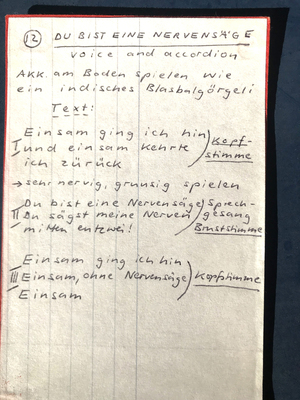 12 DU BIST EINE NERVENSÄGE
voice and accordion
AKK am Boden spielen wie
ein indisches Blasbalgörgeli
Text:
Einsam ging ich hin
I und einsam kehrte
ich zurück
Kopf-
stimme
→ sehr nervig, grunsig spielen
Du bist eine Nervensäge
II Du sägst meine Nerven
mitten entzwei!
Sprech-
gesang
Bruststimme
Einsam ging ich hin
III Einsam, ohne Nervensäge
Einsam
Kopfstimme